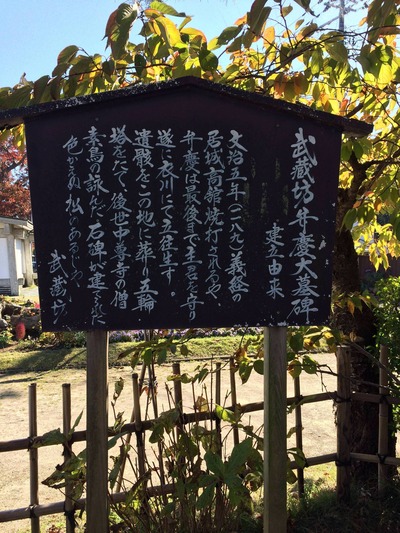 武蔵坊弁慶大墓碑
建立由来
文治五年(一一八九)義経の
居城高館焼打ちされるや
弁慶は最後まで主君を守り
遂に衣川にて立往生す、
遺骸をこの地に葬り五輪
塔を建て後世中尊寺の僧
素鳥の詠んだ石碑が建てられた
色かえぬ松のあるじや
武蔵坊